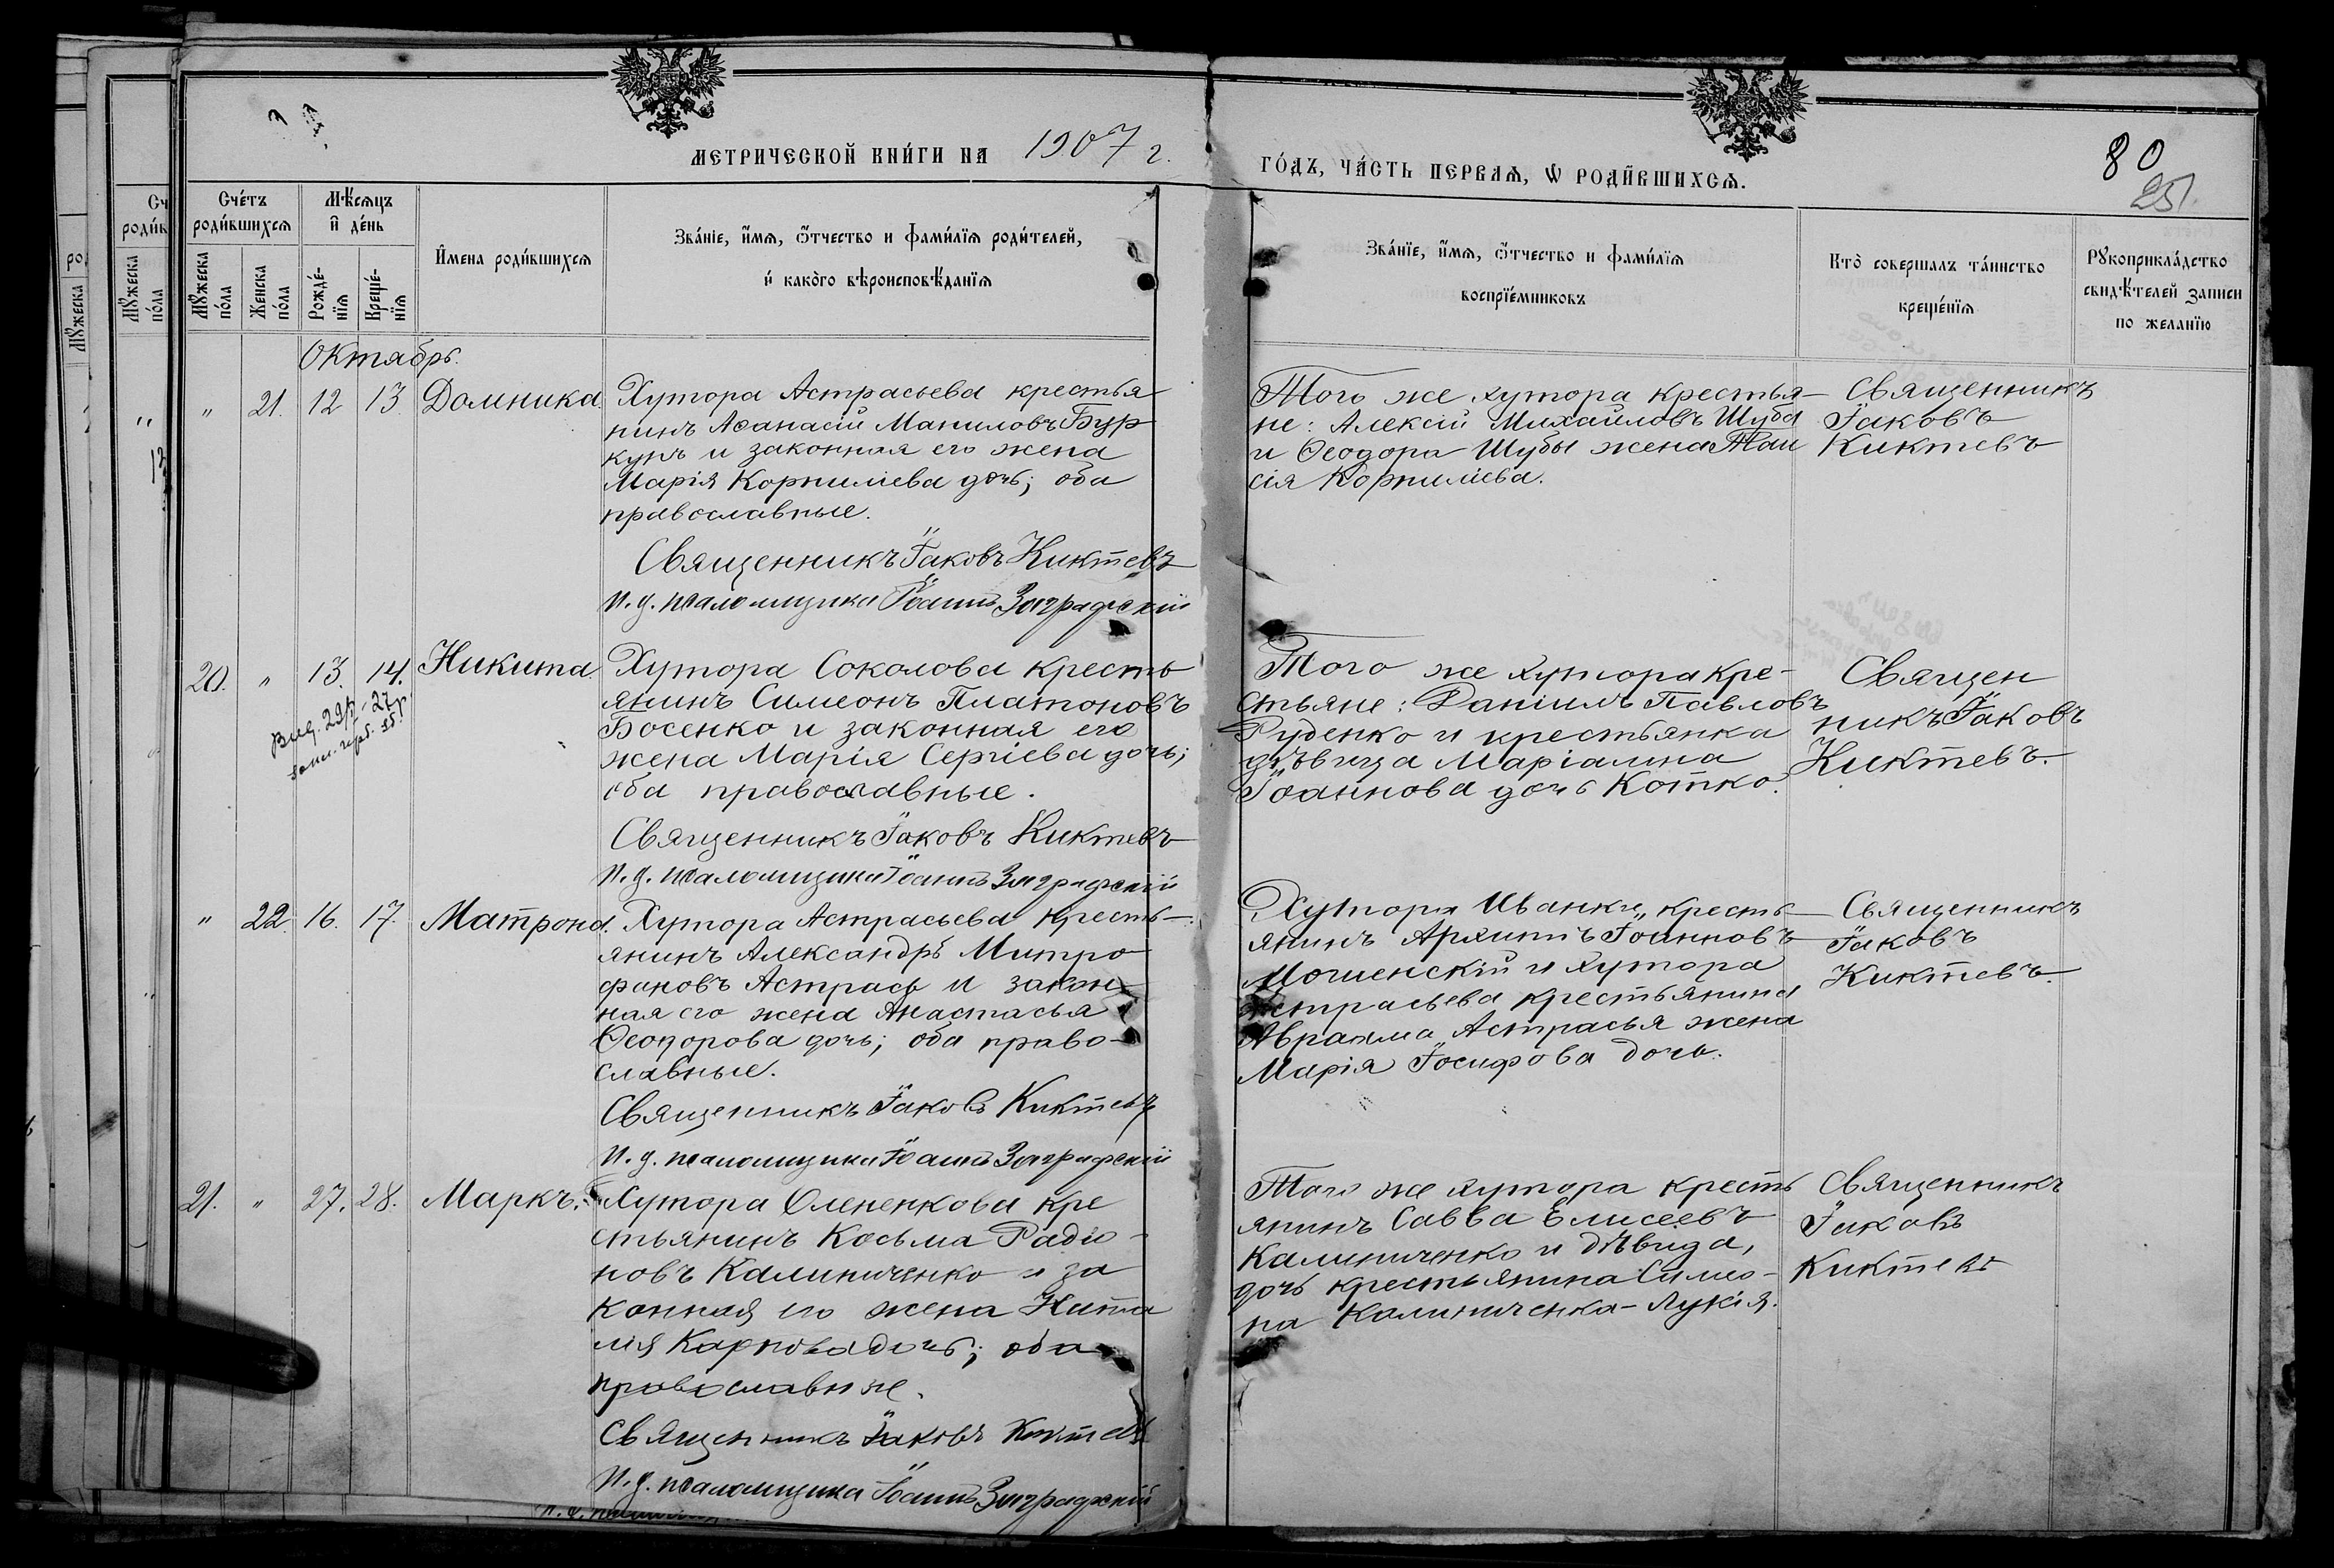 МЕТРИЧЕСКОЙ КНИГИ НА 1907 г.
ГОДЪ, ЧАСТЬ ПЕРВАЯ, Ѡ РОДИВШИХСЯ.
80
251.
Счетъ родившихся
Мѣсяцъ и день
Имена родившихся
Званіе, имя, отчество и фамилія родителей,
и какого вѣроисповѣданія
Званіе, имя, отчество и фамилія
воспріемниковъ
Кто совершалъ таинство
крещенія
Рукоприкладство
свидѣтелей записи
по желанію
Мужеска пола
Женска пола
Рожденія
Крещенія
Октябрь.
" 21. 12 13. Домника.
Хутора Астрасьева крестья
нинъ Аѳанасій Маниловъ Бур
кунъ и законная его жена
Марія Корниліева дочь; оба
православные.
Священникъ Іаковъ Киктевъ
И. д. псаломщика Іоаннъ Заграфскій
Того же хутора крестья-
не: Алексій Михайловъ Шуба
и Ѳеодора Шубы жена Таи
сія Корниліева.
Священникъ
Іаковъ
Киктевъ
20. " 13. 14. Никита.
Хутора Соколова кресть
янинъ Симеонъ Платоновъ
Босенко и законная его
жена Марія Сергіева дочь;
оба православные.
Священникъ Іаковъ Киктевъ
И. д. псаломщика Іоаннъ Заграфскій
Того же хутора кре-
стьяне: Даніилъ Павловъ
Руденко и крестьянка
дѣвица Маріамна
Іоаннова дочь Котко.
Священ
никъ Іаковъ
Киктевъ.
" 22. 16. 17. Матрона.
Хутора Астрасьева кресть-
янинъ Александръ Митро
фановъ Астрась и закон
ная его жена Анастасья
Ѳеодорова дочь; оба право-
славные.
Священникъ Іаковъ Киктевъ
И. д. псаломщика Іоаннъ Заграфскій
Хутора кресть
янинъ Архипъ Іоанновъ
и хутора
Астрасьева крестьянина
Авраама Астрасья жена
Марія Іосифова дочь.
Священникъ
Іаковъ
Киктевъ.
21. " 27. 28. Маркъ.
Хутора Олененкова кре
стьянинъ Косьма Радіо-
новъ Калиниченко и за
конная его жена Ната
лія Карпова дочь; оба
православные.
Священникъ Іаковъ Киктевъ
И. д. псаломщика Іоаннъ Заграфскій
Того же хутора кресть
янинъ Савва Елисеевъ
Калиниченко и дѣвица,
дочь крестьянина Симео-
на Калиниченка - Лукія.
Священникъ
Іаковъ
Киктевъ